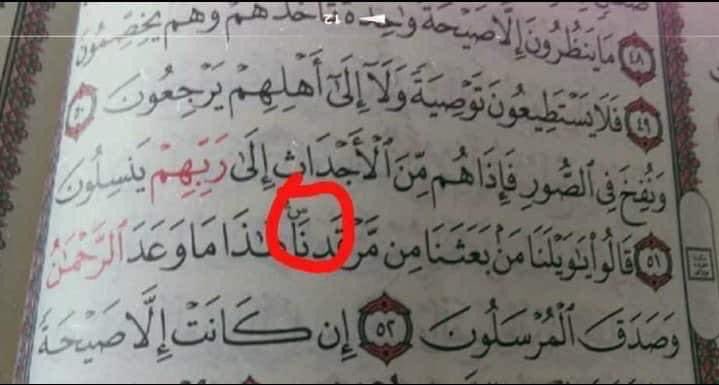 ٤٨ مَا يَنظُرُونَ إِلَّا صَيْحَةً وَٰحِدَةً تَأْخُذُهُمْ وَهُمْ يَخِصِّمُونَ
٤٩ فَلَا يَسْتَطِيعُونَ تَوْصِيَةً وَلَآ إِلَىٰٓ أَهْلِهِمْ يَرْجِعُونَ ٥٠
وَنُفِخَ فِى ٱلصُّورِ فَإِذَا هُم مِّنَ ٱلْأَجْدَاثِ إِلَىٰ رَبِّهِمْ يَنسِلُونَ
٥١ قَالُوا۟ يَٰوَيْلَنَا مَنۢ بَعَثَنَا مِن مَّرْقَدِنَاۜ هَٰذَا مَا وَعَدَ ٱلرَّحْمَٰنُ
وَصَدَقَ ٱلْمُرْسَلُونَ ٥٢ إِن كَانَتْ إِلَّا صَيْحَةً